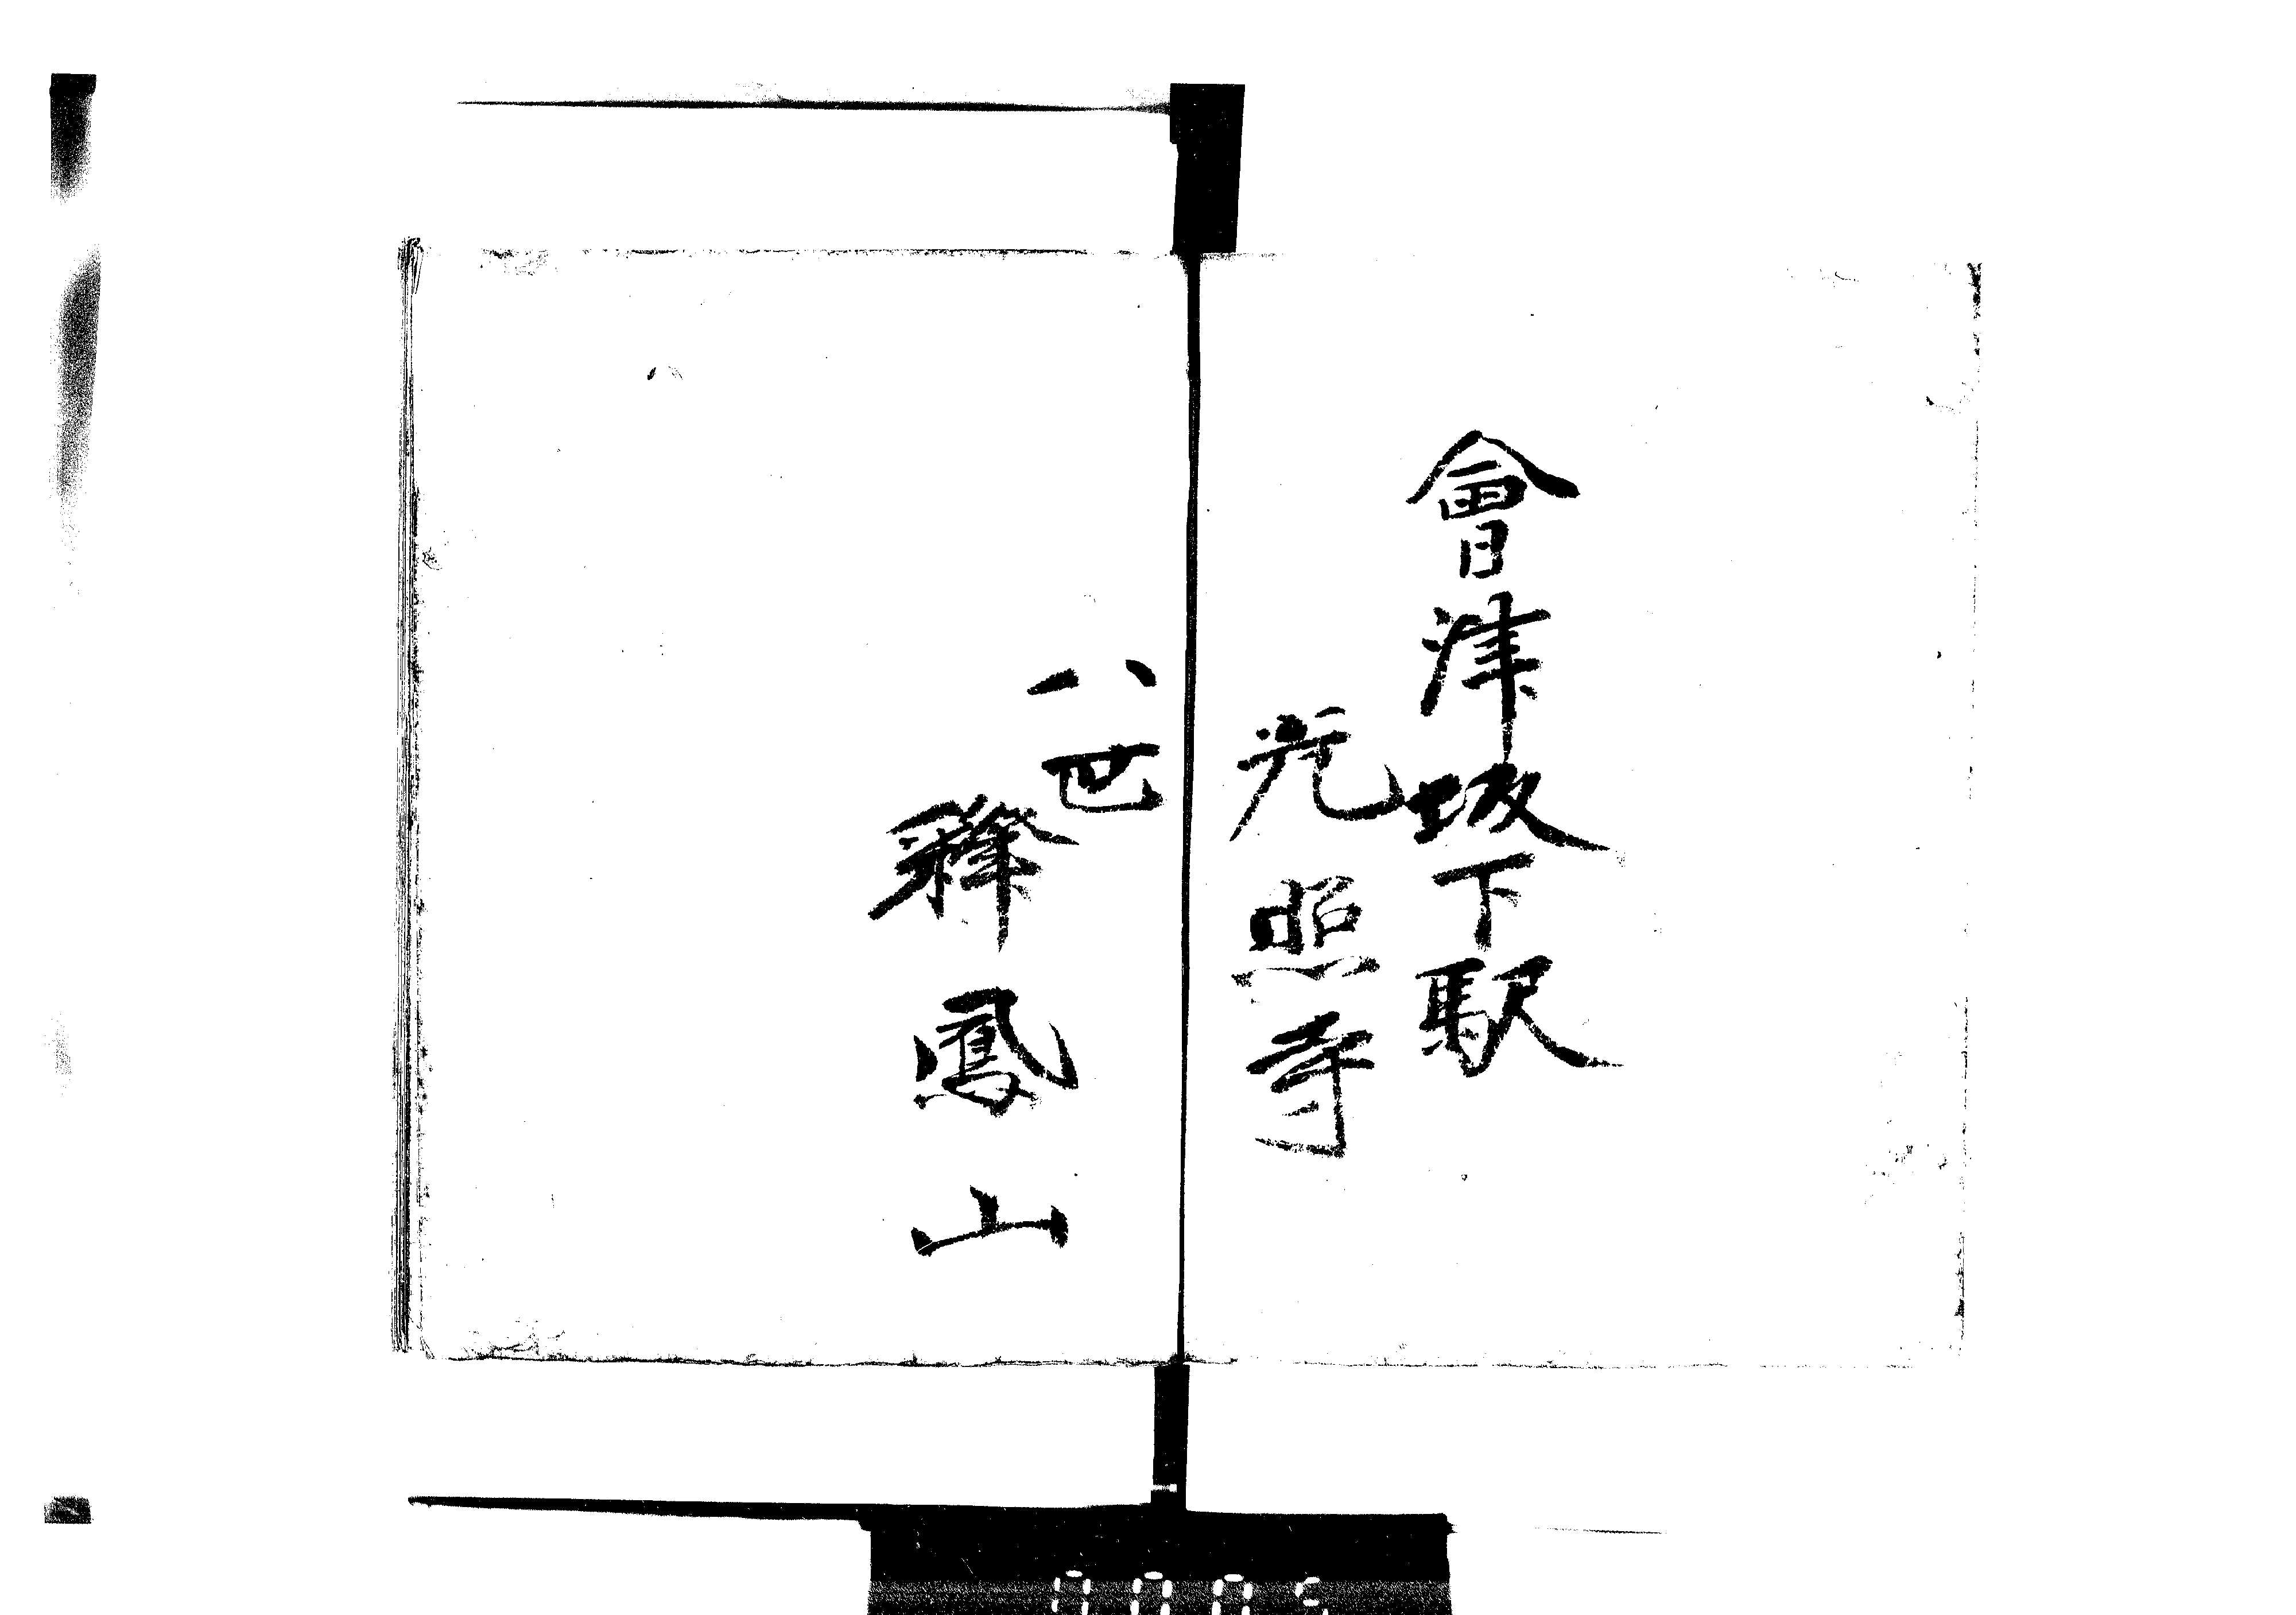 會津坂下駅
光照寺
八世
釋鳳山